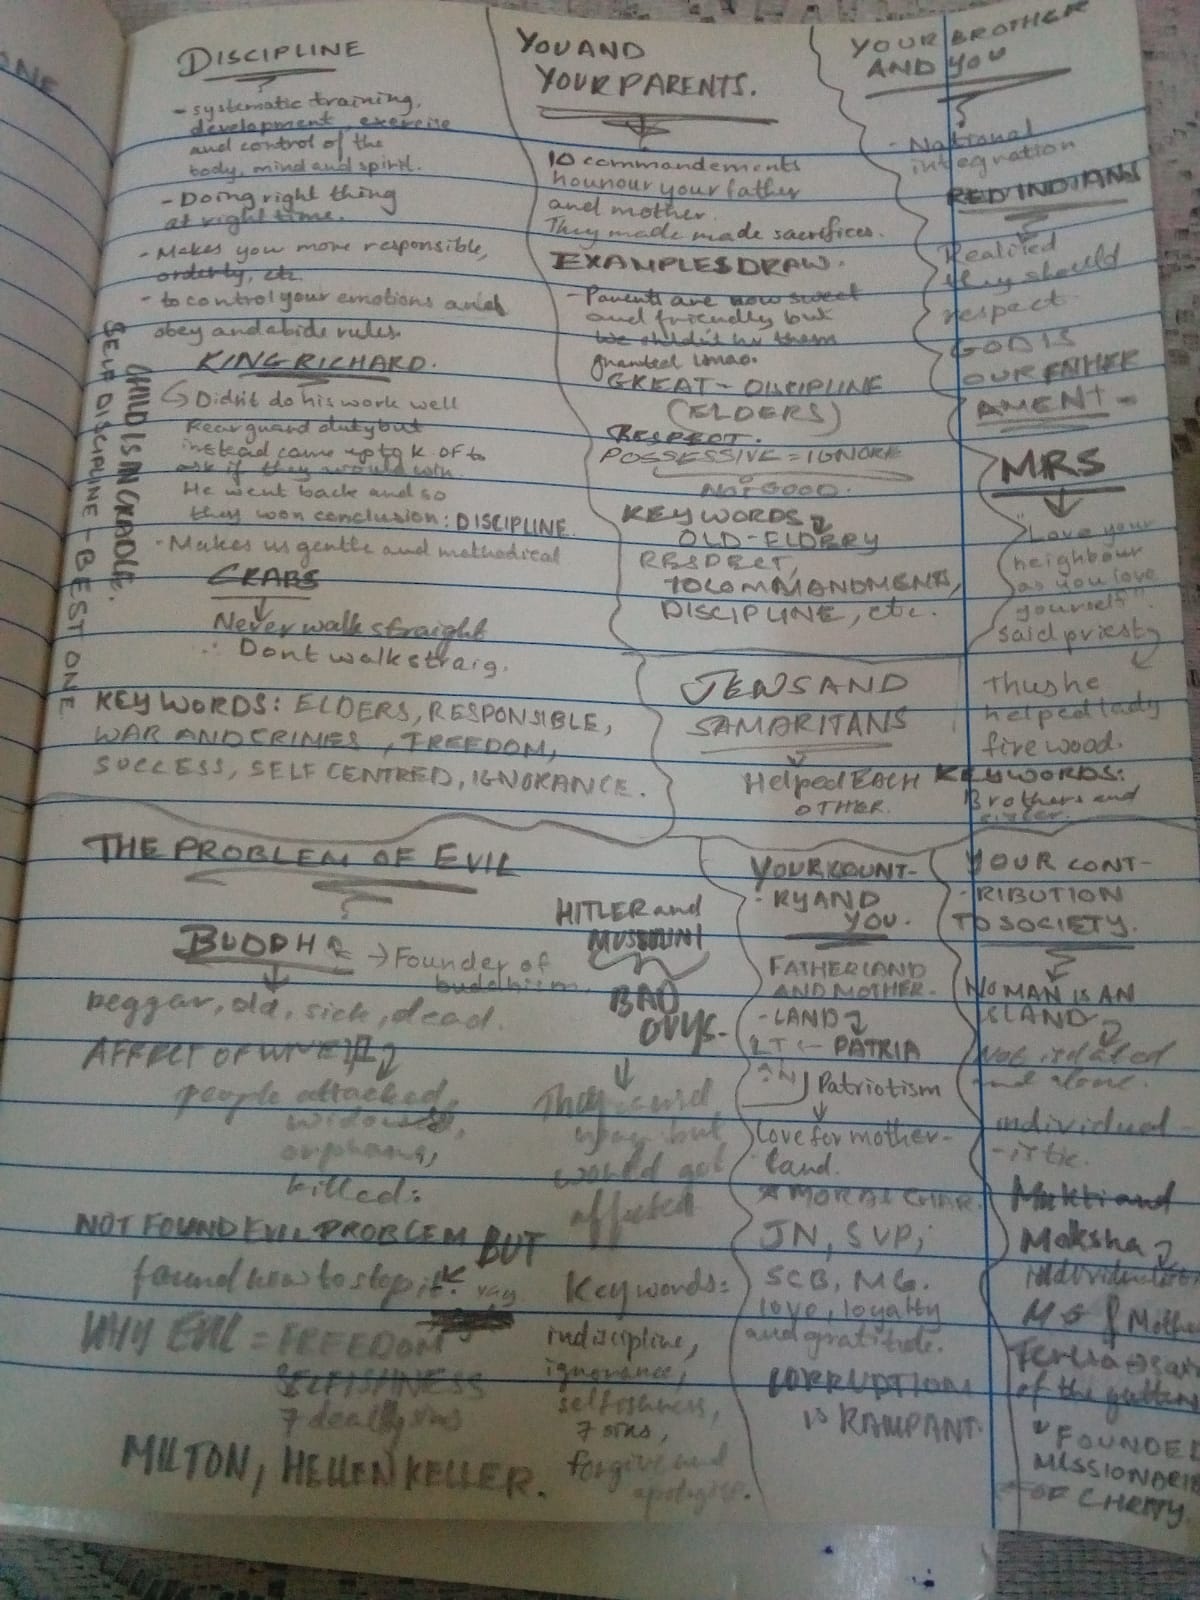 DISCIPLINE
- systematic training,
development, exercise
and control of the
body, mind and spirit.
- Doing right thing
at right time.
- Makes you more responsible,
orderly, etc.
- to control your emotions and
obey and abide rules.
KING RICHARD.
Didn't do his work well
Rear guard duty but
instead came up to K. OF to
ask if they would win
He went back and so
they won conclusion: DISCIPLINE.
- Makes us gentle and methodical
CRABS
Never walk straight
∴ Dont walk straig.
KEY WORDS: ELDERS, RESPONSIBLE,
WAR AND CRIMES, FREEDOM,
SUCCESS, SELF CENTRED, IGNORANCE.
CHILD IS IN CRADLE.
SELF DISCIPLINE - BEST ONE
YOU AND
YOUR PARENTS.
10 commandements
hounour your father
and mother.
They made made sacrifices.
EXAMPLES DRAW.
- Parents are now sweet
and friendly but
them
granted lmao.
GREAT - DISCIPLINE
(ELDERS)
RESPECT.
POSSESSIVE = IGNORE
NOT GOOD.
KEY WORDS
OLD - ELDERY
RESPECT,
10 COMMANDMENTS,
DISCIPLINE, etc.
YOUR BROTHER
AND YOU
- National
integration
RED INDIANS
Realised
they should
respect
GOD IS
OUR FATHER
AMENT -
MRS
"Love your
neighbour
as you love
yourself".
said priest
Thus he
helped lady
fire wood.
KEYWORDS:
Brothers and
sister.
JEWS AND
SAMARITANS
Helped EACH
OTHER.
THE PROBLEM OF EVIL
BUDDHA → Founder of
buddhism.
beggar, old, sick, dead.
AFFECT OF
people attacked,
widows,
orphans,
killed:
NOT FOUND EVIL PROBLEM BUT
found how to stop it.
WHY EVIL = FREEDOM
SELFISHNESS
7 deadly sins
MILTON, HELLEN KELLER.
HITLER and
MUSSOLINI
BAD
GUYS.
They
but
would get
affected
Keywords:
indiscipline,
ignorance,
selfishness,
7 sins,
forgive and
apologise.
YOUR COUNT-
RY AND
YOU.
FATHERLAND
AND MOTHER.
- LAND
LT ← PATRIA
Patriotism
love for mother-
land.
* MORAL CHAR.
JN, SVP,
SCB, MG.
love, loyalty
and gratitude.
CORRUPTION
IS RAMPANT.
YOUR CONT-
RIBUTION
TO SOCIETY.
NO MAN IS AN
ISLAND
Not isolated
and alone.
individual-
-istic.
Mukti and
Moksha
M G & Mothe
Teresa →
of the gutters
"FOUNDED
MISSIONARIE
OF CHRITY.